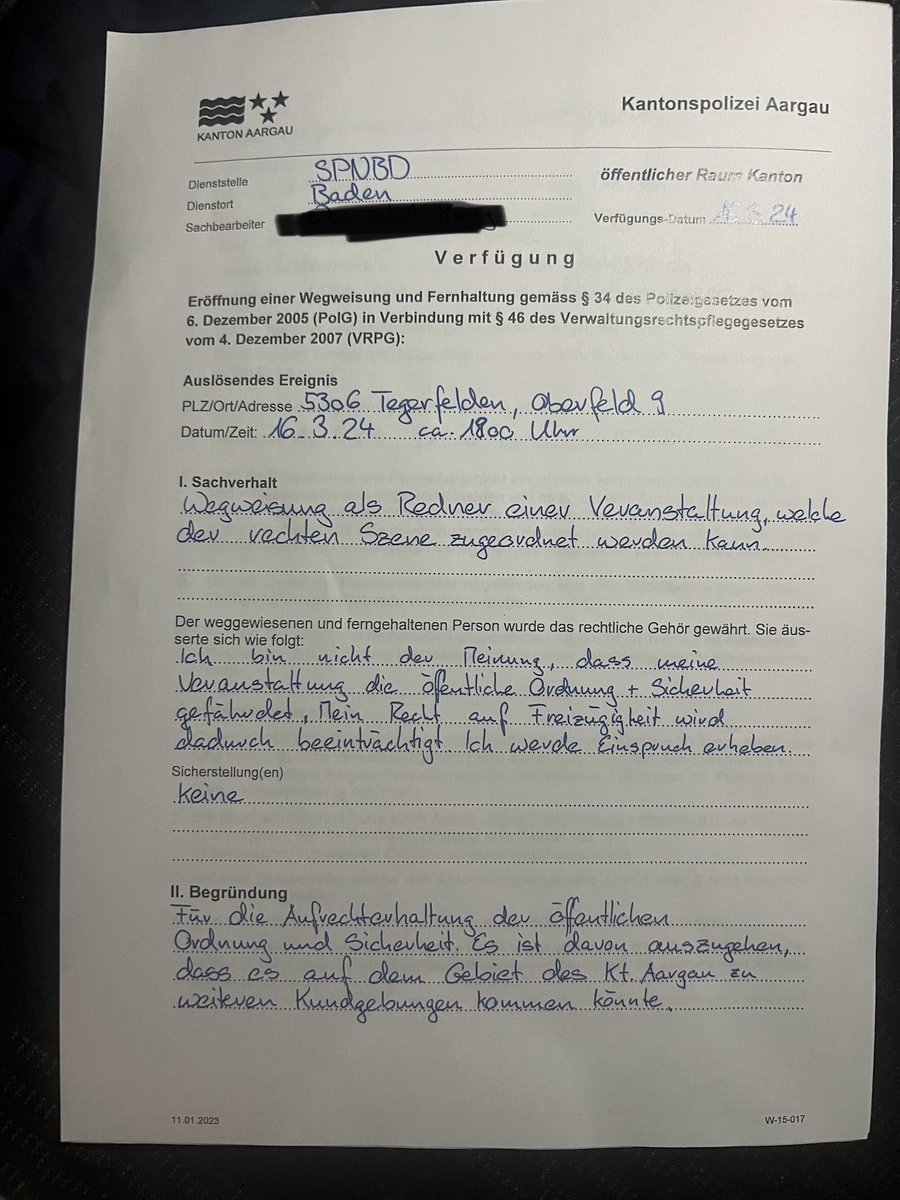 KANTON AARGAU
Kantonspolizei Aargau
Dienststelle SPNBD
öffentlicher Raum Kanton
Dienstort Baden
Sachbearbeiter
Verfügungs-Datum 16.3.24
Verfügung
Eröffnung einer Wegweisung und Fernhaltung gemäss § 34 des Polizeigesetzes vom
6. Dezember 2005 (PolG) in Verbindung mit § 46 des Verwaltungsrechtspflegegesetzes
vom 4. Dezember 2007 (VRPG):
Auslösendes Ereignis
PLZ/Ort/Adresse 5306 Tegerfelden, Oberfeld 9
Datum/Zeit: 16.3.24 ca. 1800 Uhr
I. Sachverhalt
Wegweisung als Redner einer Veranstaltung, welche
der rechten Szene zugeordnet werden kann.
Der weggewiesenen und ferngehaltenen Person wurde das rechtliche Gehör gewährt. Sie äus-
serte sich wie folgt:
Ich bin nicht der Meinung, dass meine
Veranstaltung die öfentliche Ordnung + Sicherheit
gefährdet, Mein Recht auf Freizügigkeit wird
dadurch beeinträchtigt Ich werde Einspruch erheben.
Sicherstellung(en)
Keine
II. Begründung
Für die Aufrechterhaltung der öffentlichen
Ordnung und Sicherheit. Es ist davon auszugehen,
dass es auf dem Gebiet des Kt. Aargau zu
weiteren Kundgebungen kommen könnte.
11.01.2023
W-15-017